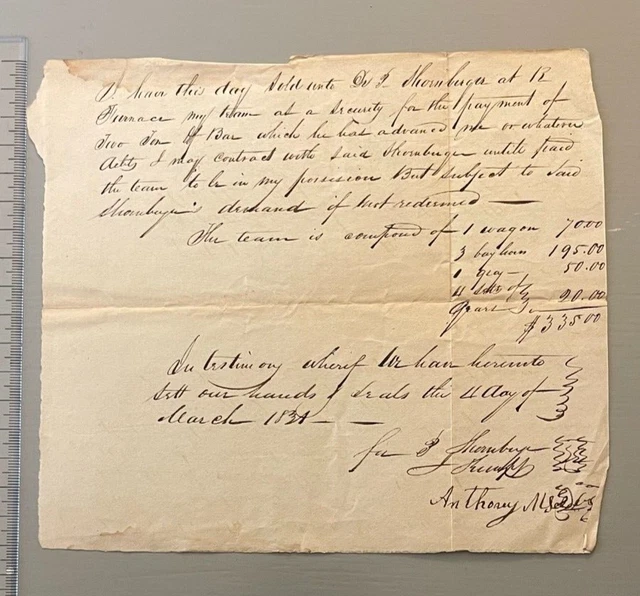 I have this day Sold unto Dr P. Shornberger at R
Furnace my team as a Security for the payment of
Two Ton of Bar which he has advanced me or whatever
debts I may contract with Said Shornberger untill paid
the team to be in my possesion But Subject to Said
Shornberger's demand if not redeemed —
The team is composed of 1 wagon 70.00
3 bay horses 195.00
1 gray — 50.00
4 setts of
gears 20.00
$335.00
In testimony whereof We have hereunto
sett our hands & seals this 4 day of
March 1834 — —
for P Shornberger
Anthony